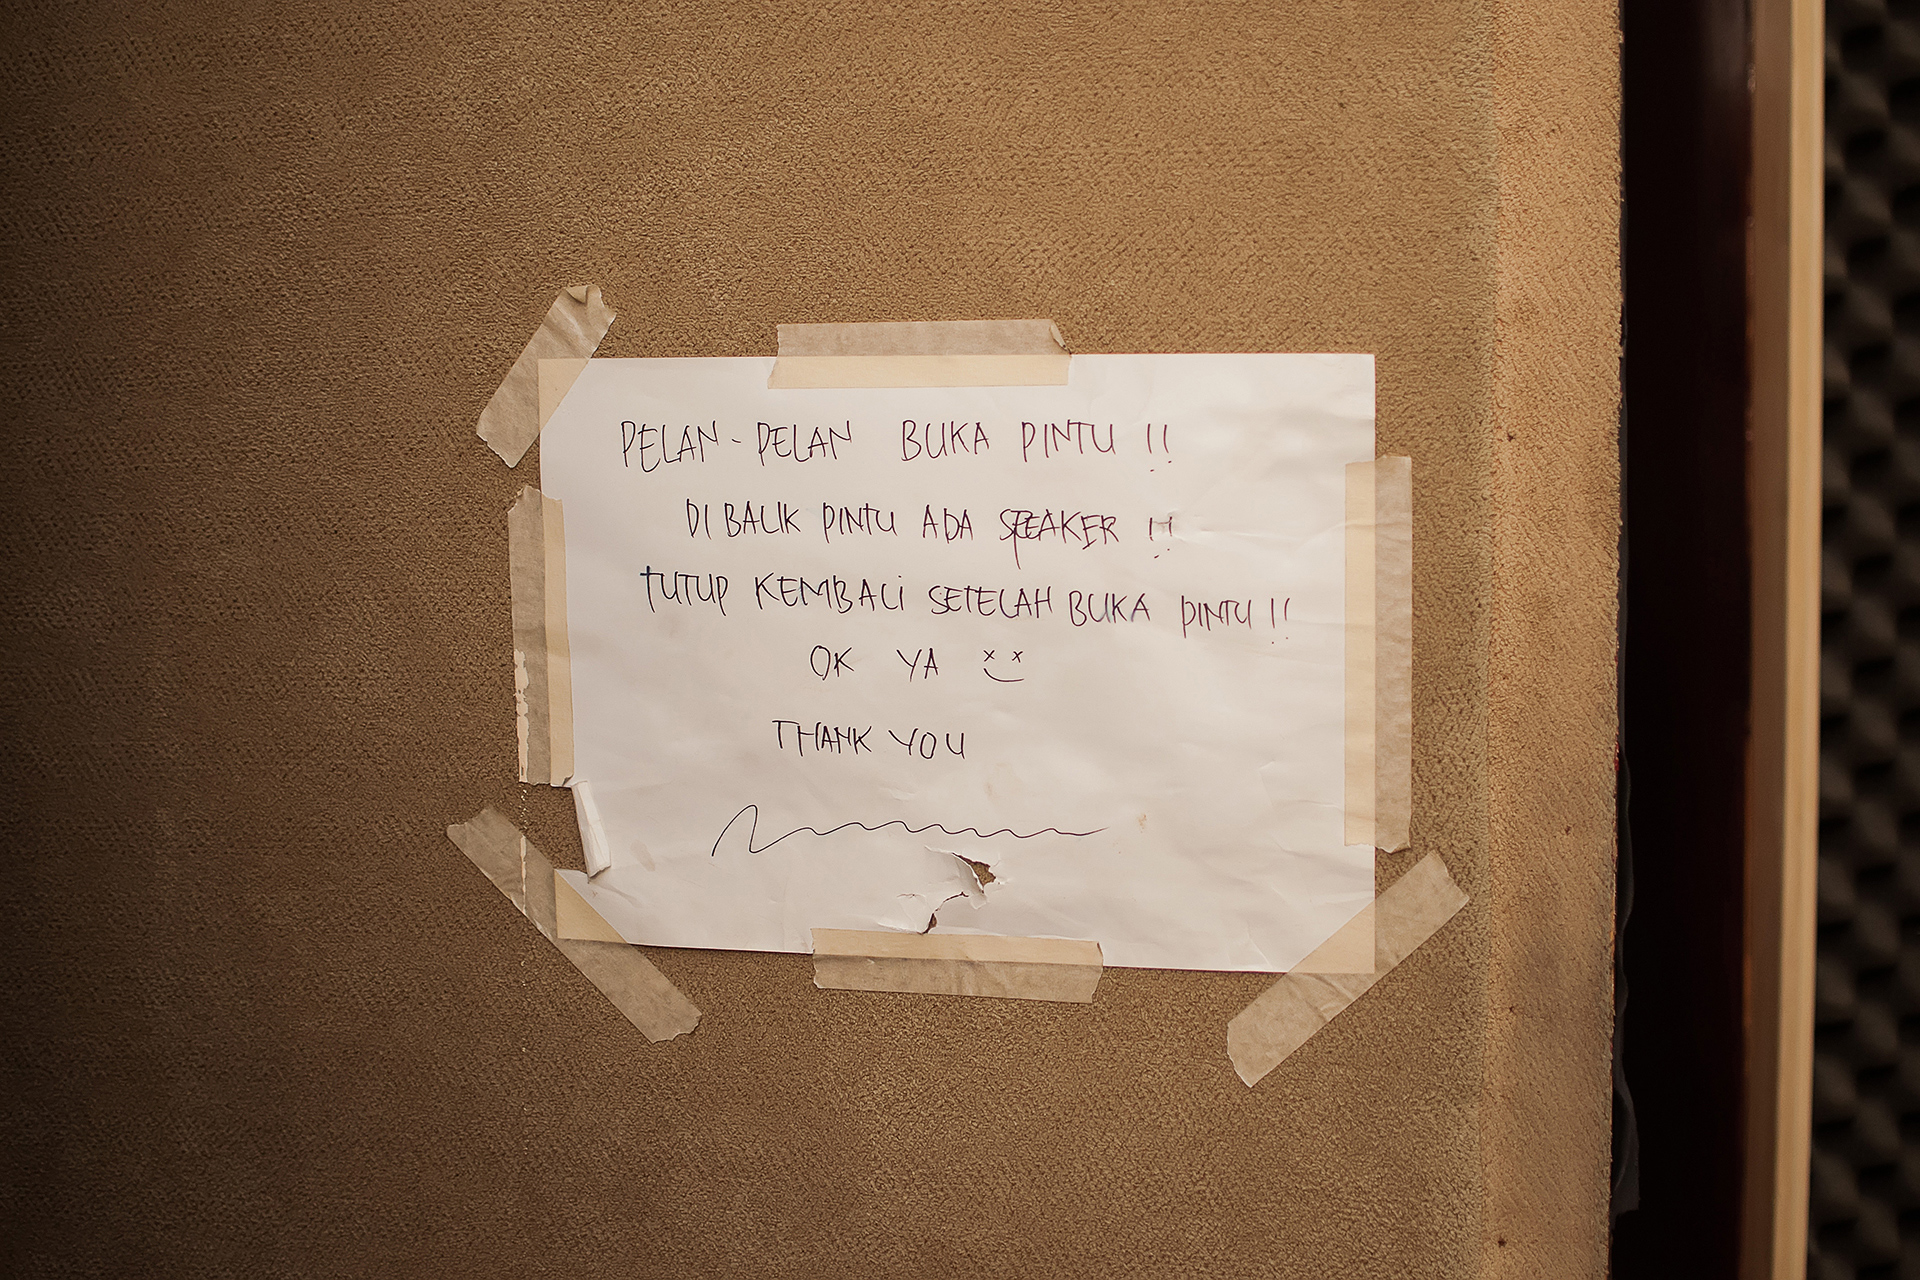 PELAN-PELAN BUKA PINTU !!
DI BALIK PINTU ADA SPEAKER !!
TUTUP KEMBALI SETELAH BUKA PINTU !!
OK YA
THANK YOU